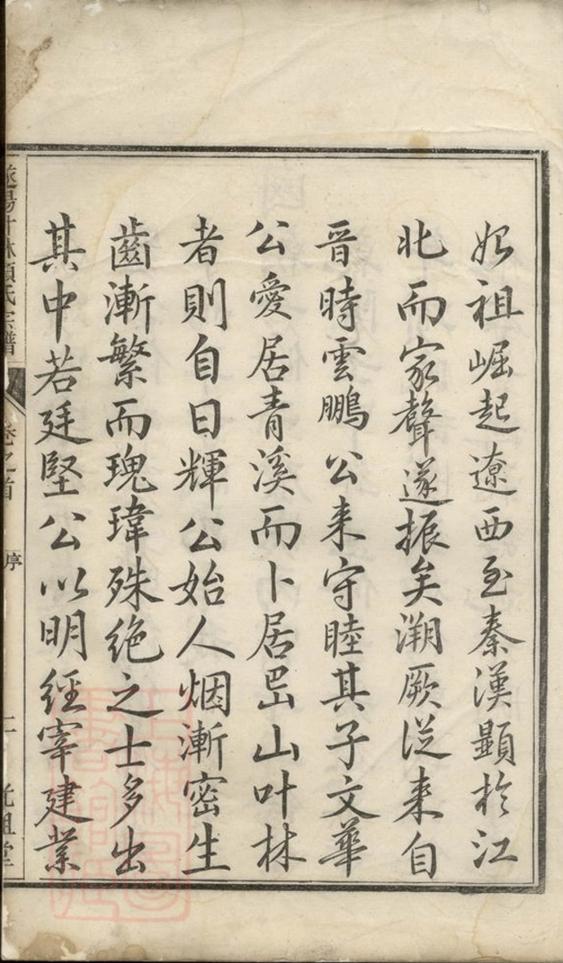 始祖崛起遼西至秦漢顯於江
北而家聲遂振矣溯厥從来自
晉時雲鵬公来守睦其子文華
公愛居青溪而卜居岊山叶林
者則自日輝公始人烟漸密生
齒漸繁而瑰瑋殊绝之士多出
其中若廷堅公以明經宰建業
遂陽叶林項氏宗譜
卷之首
序
二
光祖堂